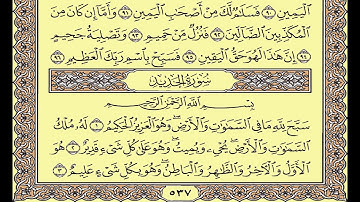 ٱلۡيَمِينِ ٩٠ فَسَلَٰمٞ لَّكَ مِنۡ أَصۡحَٰبِ ٱلۡيَمِينِ ٩١ وَأَمَّآ إِن كَانَ مِنَ
ٱلۡمُكَذِّبِينَ ٱلضَّآلِّينَ ٩٢ فَنُزُلٞ مِّنۡ حَمِيمٖ ٩٣ وَتَصۡلِيَةُ جَحِيمٍ
٩٤ إِنَّ هَٰذَا لَهُوَ حَقُّ ٱلۡيَقِينِ ٩٥ فَسَبِّحۡ بِٱسۡمِ رَبِّكَ ٱلۡعَظِيمِ ٩٦
سُورَةُ الحَدِيدِ
بِسۡمِ ٱللَّهِ ٱلرَّحۡمَٰنِ ٱلرَّحِيمِ
سَبَّحَ لِلَّهِ مَا فِي ٱلسَّمَٰوَٰتِ وَٱلۡأَرۡضِۖ وَهُوَ ٱلۡعَزِيزُ ٱلۡحَكِيمُ ١ لَهُۥ مُلۡكُ
ٱلسَّمَٰوَٰتِ وَٱلۡأَرۡضِۖ يُحۡيِۦ وَيُمِيتُۖ وَهُوَ عَلَىٰ كُلِّ شَيۡءٖ قَدِيرٌ ٢ هُوَ
ٱلۡأَوَّلُ وَٱلۡأٓخِرُ وَٱلظَّٰهِرُ وَٱلۡبَاطِنُۖ وَهُوَ بِكُلِّ شَيۡءٍ عَلِيمٌ ٣
٥٣٧